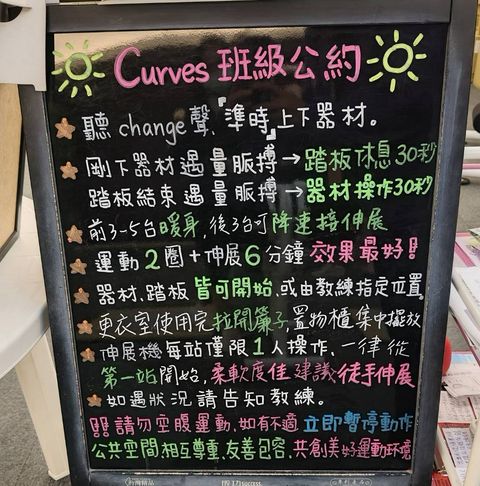 Curves 班級公約
聽 change 聲,『準時』上下器材。
剛下器材遇量脈搏→踏板休息30秒
踏板結束遇量脈搏→器材操作30秒
前3-5台暖身,後3台可降速接伸展
運動2圈+伸展6分鐘 效果最好!!
器材、踏板 皆可開始,或由教練指定位置。
更衣室使用完拉開簾子,置物櫃集中擺放
伸展機每站僅限1人操作,一律從
第一站開始,柔軟度佳 建議徒手伸展
如遇狀況請告知教練。
!!請勿空腹運動,如有不適 立即暫停動作
公共空間相互尊重,友善包容,共創美好運動環境